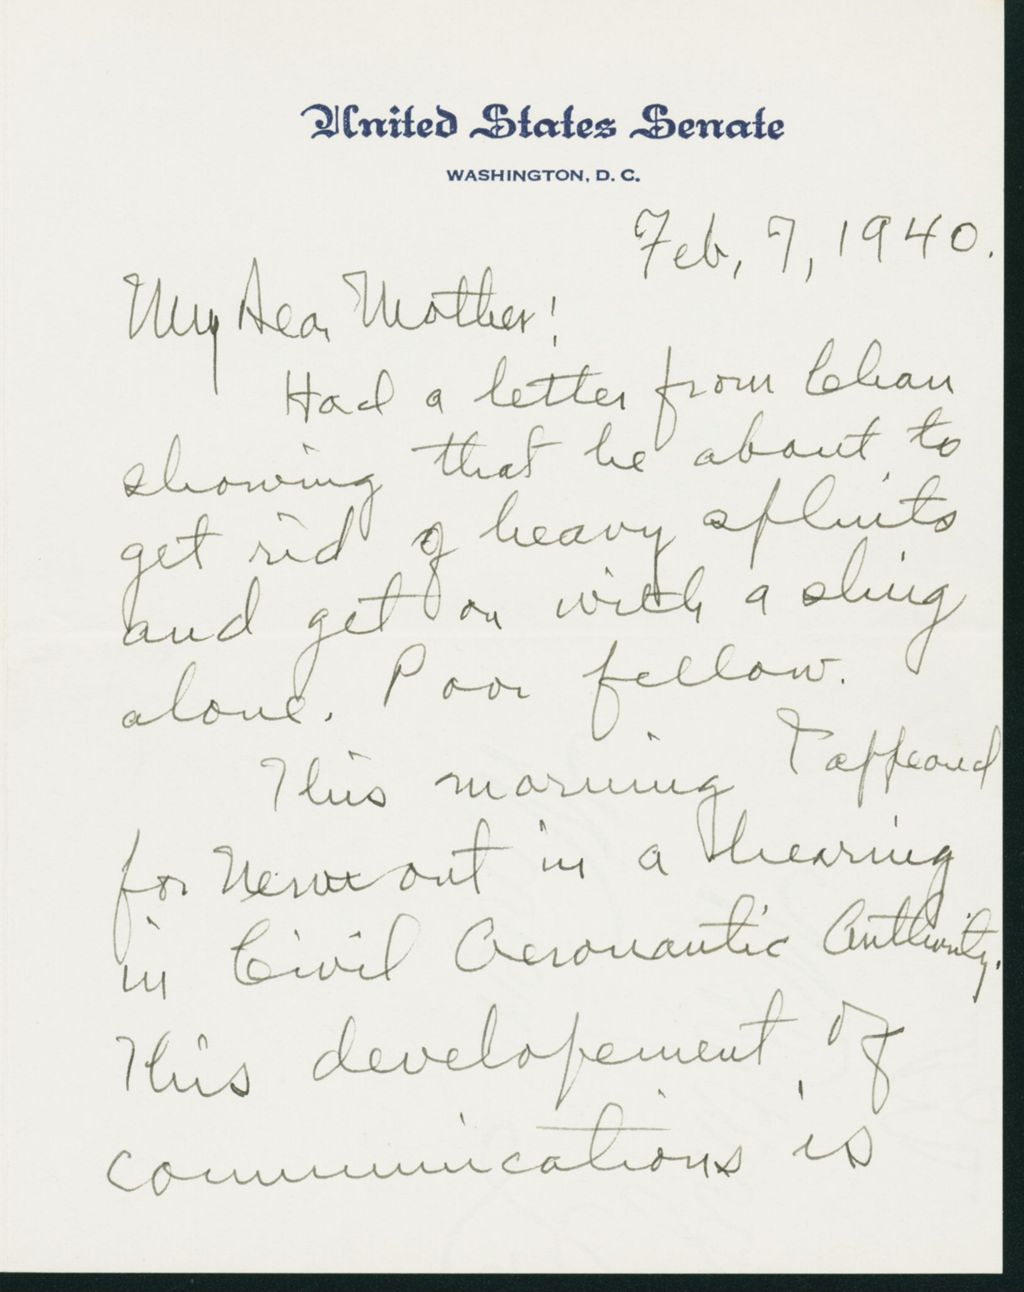 United States Senate
WASHINGTON, D. C.
Feb. 7, 1940.
My Dear Mother!
Had a letter from Chan
showing that he about to
get rid of heavy splints
and get on with a sling
alone. Poor fellow.
This morning I appeared
for Vermont in a hearing
in Civil Aeronautic Authority.
This developement of
communications is